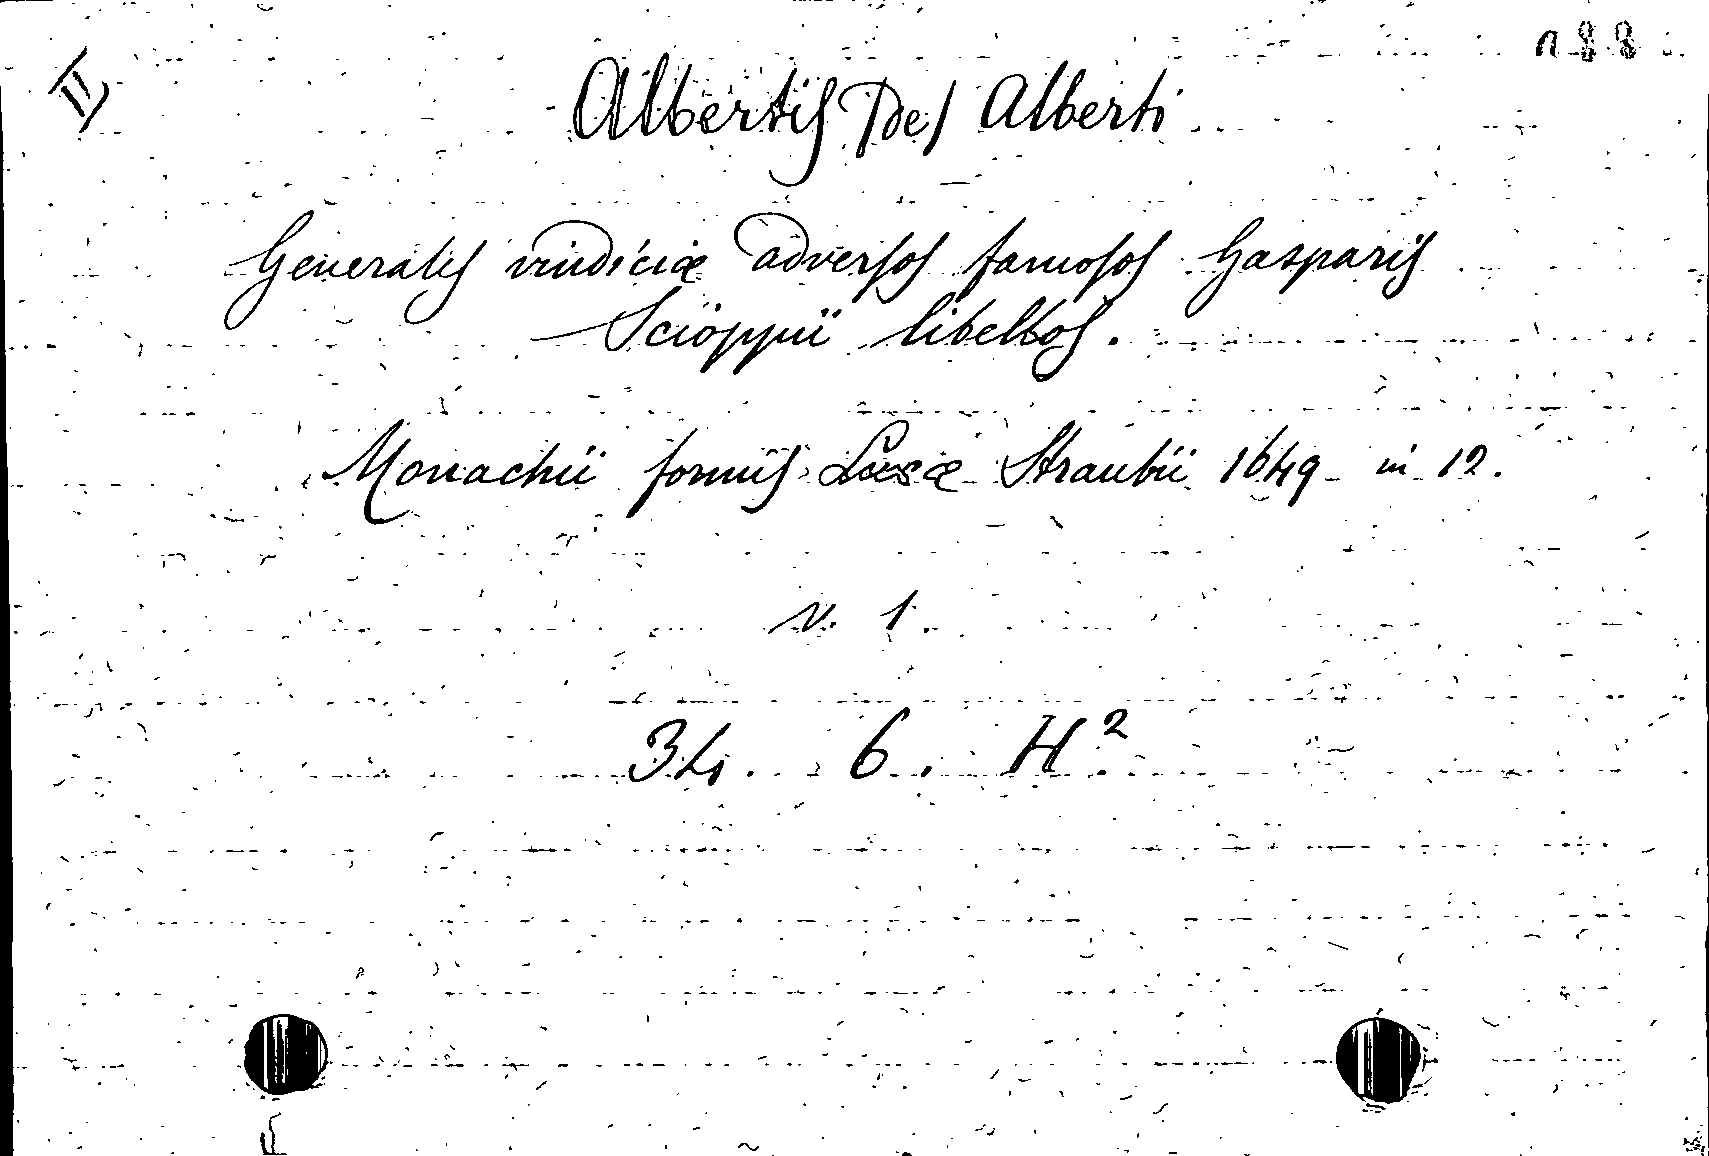 II
n 88
Albertis (De) Alberti
Generales vindiciæ adversos famosos Gasparis
Scioppii libellos.
Monachii formis Lucæ Straubii 1649 in 12.
v. 1.
34. 6. H²